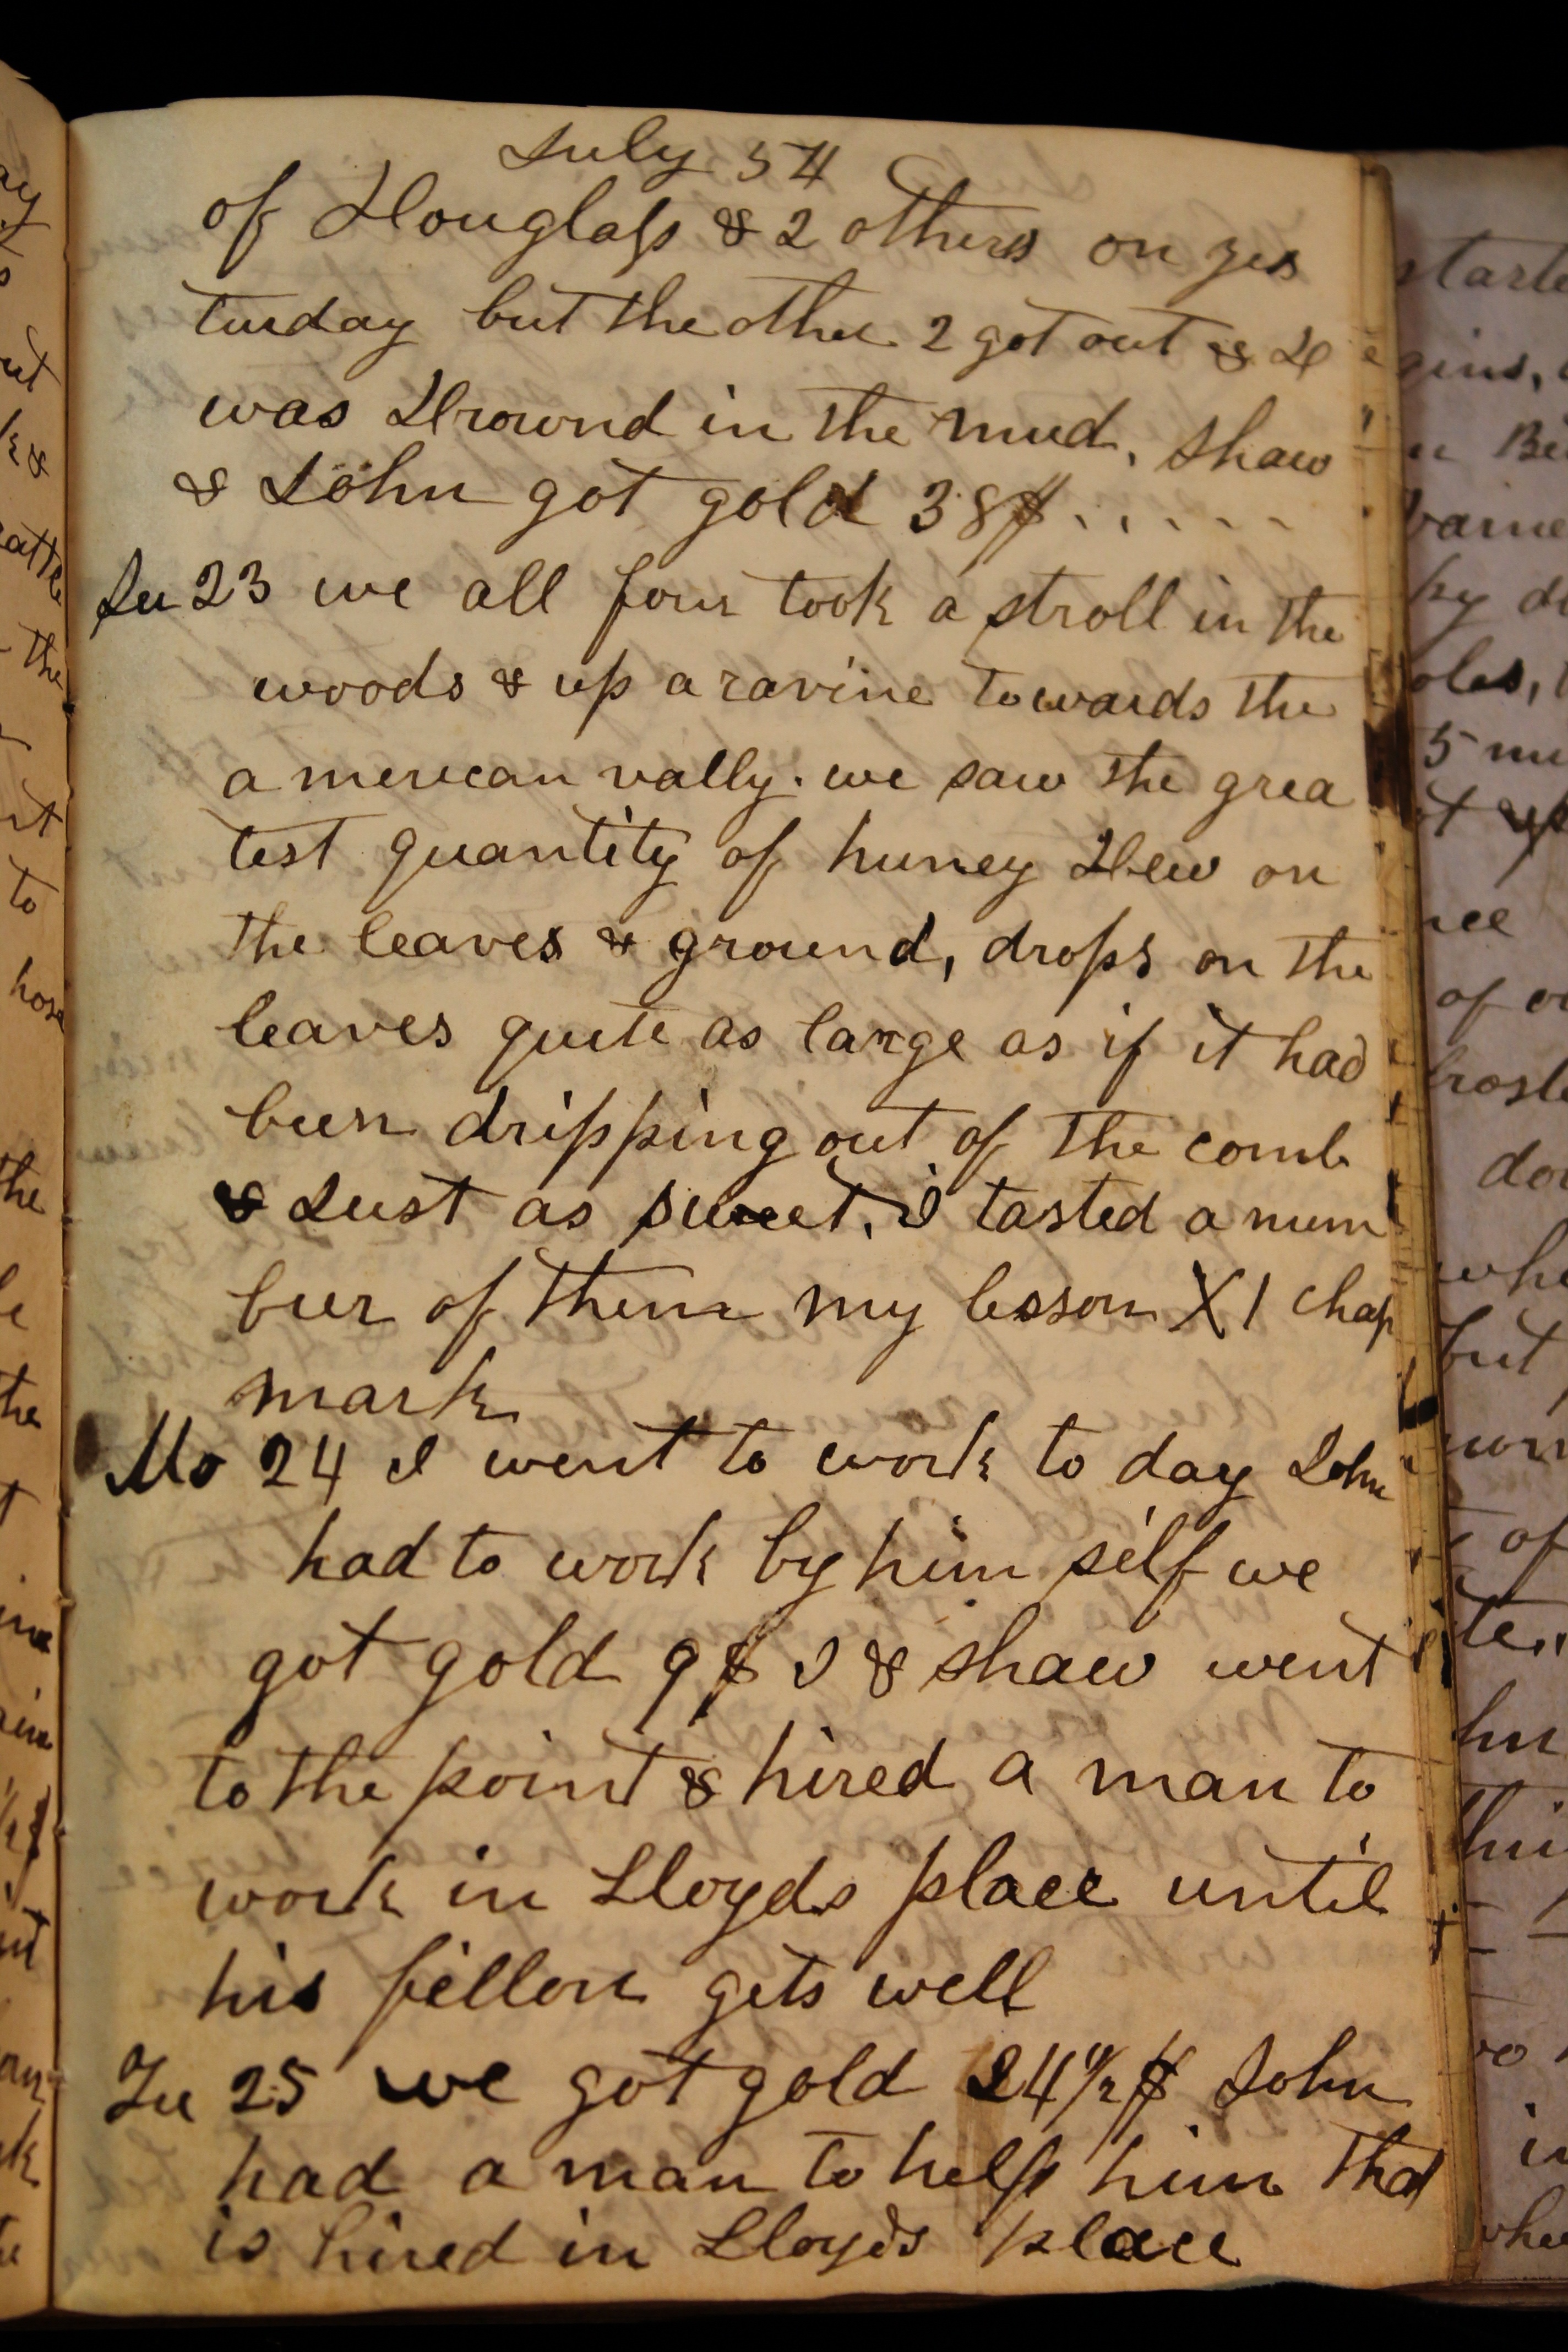 July 54
of Douglass & 2 others on yes
turday but the other 2 got out & D
was Drownd in the mud, Shaw
& John got gold 38$ . . . . .
Su 23 we all four took a stroll in the
woods & up a ravine towards the
american vally. we saw the grea
test quantity of huney Dew on
the leaves & ground, drops on the
leaves quite as large as if it had
been dripping out of the comb
& Just as sweet, I tasted a num
ber of them my lesson X1 chap
mark
Mo 24 I went to work to day John
had to work by him self we
got gold 9$ I & Shaw went
to the point & hired a man to
work in Lloyds place until
his fellon gets well
Tu 25 we got gold 24 1/2 $ John
had a man to help him that
is hired in Lloyds place